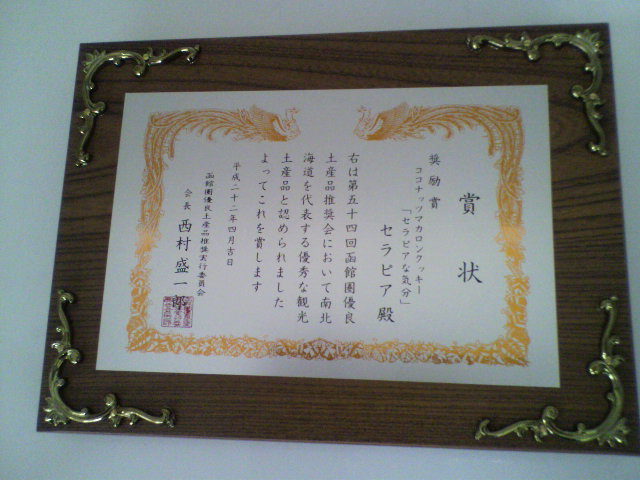 賞状
奨励賞
ココナッツマカロンクッキー
「セラピアな気分」
セラピア 殿
右は第五十四回函館圏優良
土産品推奨会において南北
海道を代表する優秀な観光
土産品と認められました
よってこれを賞します
平成二十二年四月吉日
函館圏優良土産品推奨会実行委員会
会長 西村盛一郎